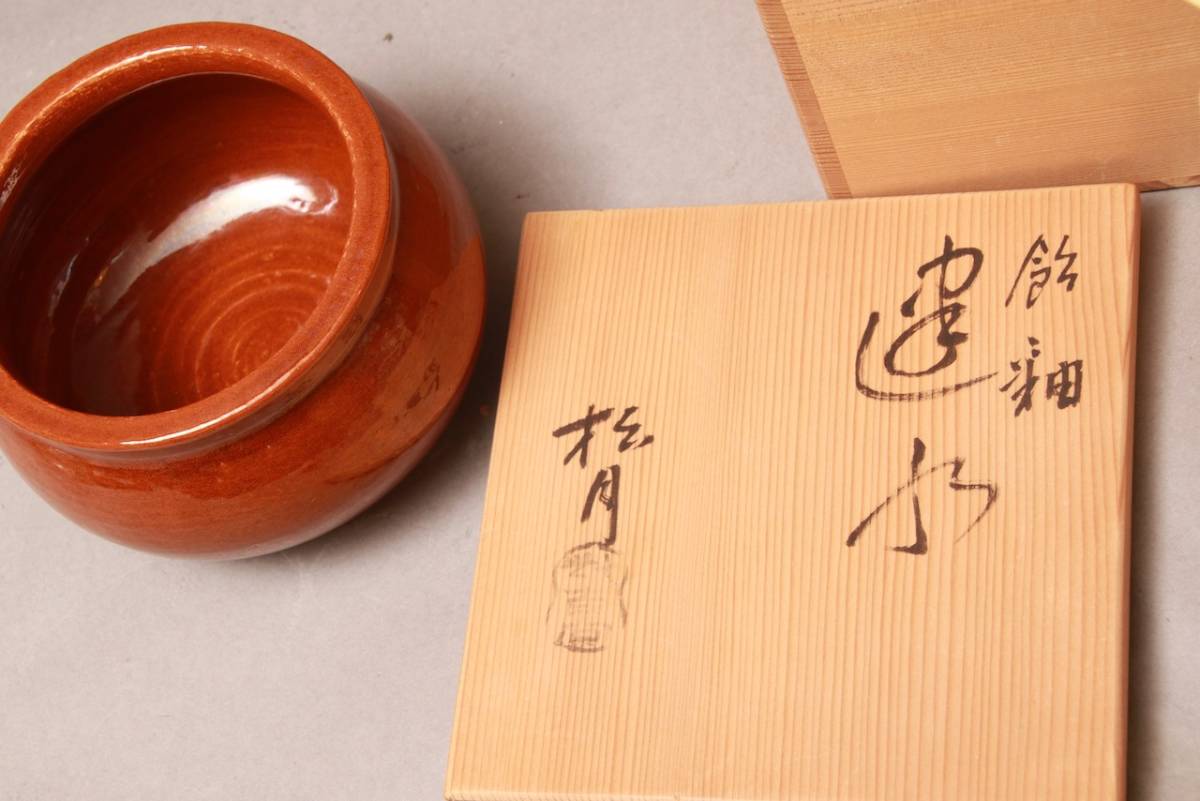 飴釉
建水
松月